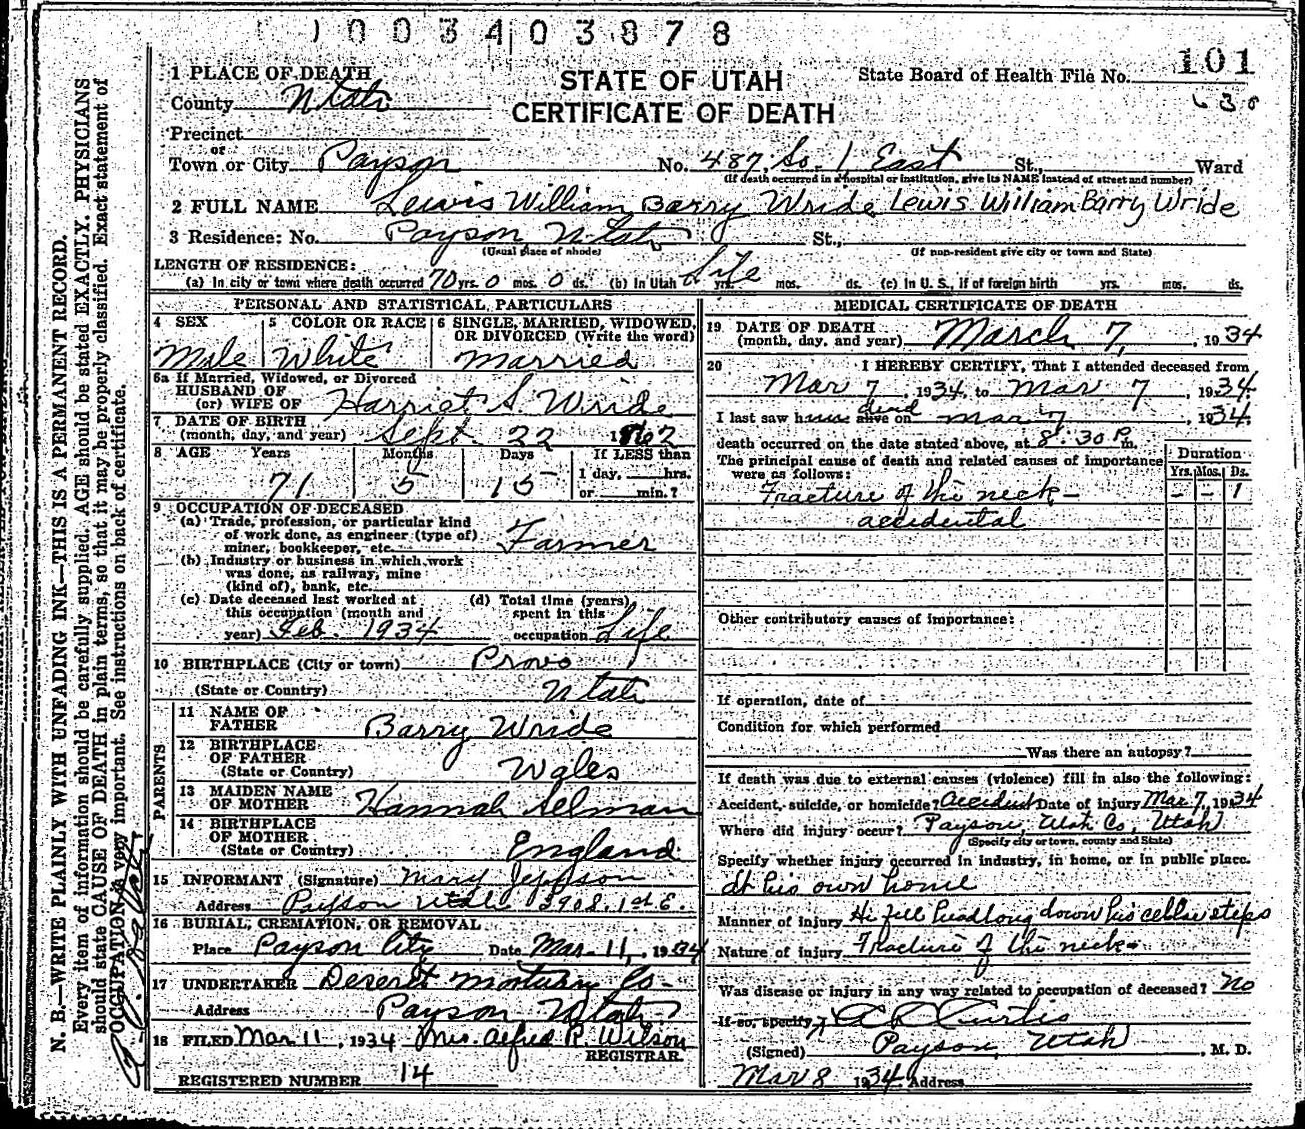 1003403878
101
1 PLACE OF DEATH
STATE OF UTAH
State Board of Health File No.
County Utah
CERTIFICATE OF DEATH
630
Precinct
or
Town or City Payson No. 487 So. 1 East St., Ward
(If death occurred in a hospital or institution, give its NAME instead of street and number)
2 FULL NAME Lewis William Barry Wride Lewis William Barry Wride
3 Residence: No. Payson Utah St.,
(Usual place of abode) (If non-resident give city or town and State)
LENGTH OF RESIDENCE:
(a) In city or town where death occurred 70 yrs. 0 mos. 0 ds. (b) In Utah Life yrs. mos. ds. (c) In U. S., if of foreign birth yrs. mos. ds.
PERSONAL AND STATISTICAL PARTICULARS
4 SEX 5 COLOR OR RACE 6 SINGLE, MARRIED, WIDOWED,
OR DIVORCED (Write the word)
Male White Married
6a If Married, Widowed, or Divorced
HUSBAND OF
(or) WIFE OF Harriet S. Wride
7 DATE OF BIRTH
(month, day, and year) Sept. 22 1862
8 AGE Years Months Days If LESS than
1 day, hrs.
71 5 15 or min.?
9 OCCUPATION OF DECEASED
(a) Trade, profession, or particular kind
of work done, as engineer (type of)
miner, bookkeeper, etc. Farmer
(b) Industry or business in which work
was done, as railway, mine
(kind of), bank, etc.
(c) Date deceased last worked at (d) Total time (years)
this occupation (month and spent in this
year) Feb. 1934 occupation Life
10 BIRTHPLACE (City or town) Provo
(State or Country) Utah
PARENTS
11 NAME OF
FATHER Barry Wride
12 BIRTHPLACE
OF FATHER
(State or Country) Wales
13 MAIDEN NAME
OF MOTHER Hannah Selman
14 BIRTHPLACE
OF MOTHER
(State or Country) England
15 INFORMANT (Signature) Mary Jeppson
Address Payson Utah 390 S. 1st E.
16 BURIAL, CREMATION, OR REMOVAL
Place Payson City Date Mar. 11, 1934
17 UNDERTAKER Deseret Mortuary Co.
Address Payson Utah
18 FILED Mar 11, 1934 Mrs. Alfred R. Wilson
REGISTRAR.
REGISTERED NUMBER 14
MEDICAL CERTIFICATE OF DEATH
19 DATE OF DEATH
(month, day, and year) March 7, 1934
20 I HEREBY CERTIFY, That I attended deceased from
Mar 7, 1934, to Mar 7, 1934.
I last saw him dead alive on Mar 7, 1934.
death occurred on the date stated above, at 8:30 P.m.
The principal cause of death and related causes of importance
were as follows:
Duration
Yrs. Mos. Ds.
Fracture of the neck - - - 1
accidental
Other contributory causes of importance:
If operation, date of
Condition for which performed
Was there an autopsy?
If death was due to external causes (violence) fill in also the following:
Accident, suicide, or homicide? Accident Date of injury Mar 7, 1934
Where did injury occur? Payson, Utah Co., Utah
(Specify city or town, county and State)
Specify whether injury occurred in industry, in home, or in public place.
At his own home
Manner of injury He fell headlong down his cellar steps
Nature of injury Fracture of the neck -
Was disease or injury in any way related to occupation of deceased? No
If so, specify
A L Curtis
(Signed) Payson, Utah, M. D.
Mar 8 1934 Address
N. B.—WRITE PLAINLY WITH UNFADING INK—THIS IS A PERMANENT RECORD.
Every item of information should be carefully supplied. AGE should be stated EXACTLY. PHYSICIANS
should state CAUSE OF DEATH in plain terms, so that it may be properly classified. Exact statement of
OCCUPATION is very important. See instructions on back of certificate.